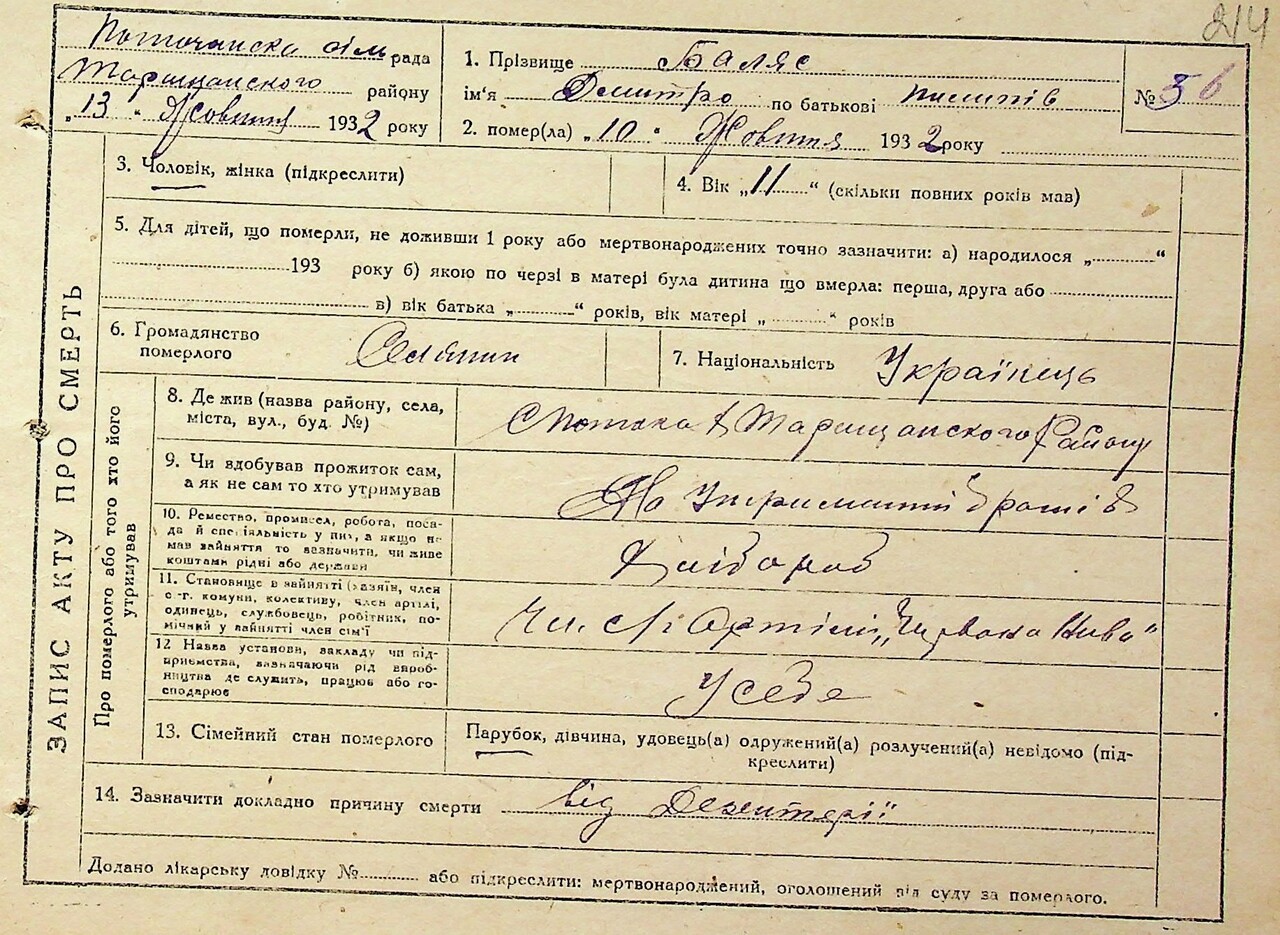 214
Поточанска сіль рада
Таращанского району
„13“ Жовтня 1932 року
1. Прізвище Баляс
ім'я Дмитро по батькові Пилипів
2. помер(ла) „10“ Жовтня 1932 року
№ 56
ЗАПИС АКТУ ПРО СМЕРТЬ
3. Чоловік, жінка (підкреслити)
4. Вік „11“ (скільки повних років мав)
5. Для дітей, що померли, не доживши 1 року або мертвонароджених точно зазначити: а) народилося „............“
....................193 року б) якою по черзі в матері була дитина що вмерла: перша, друга або....................
.................... в) вік батька „............“ років, вік матері „............“ років
6. Громадянство
померлого
7. Національність Українець
Про померлого або того хто його
утримував
8. Де жив (назва району, села,
міста, вул., буд. №)
Таращанского Району
9. Чи вдобував прожиток сам,
а як не сам то хто утримував
На Утриманні братів
10. Ремество, промисел, робота, поса-
да й спеціяльність у них, а якщо не
мав зайняття то зазначити, чи живе
коштами рідні або держави
Хлібороб
11. Становище в зайнятті (хазяїн, член
с.-г. комуни, колективу, член артілі,
одинець, службовець, робітник, по-
мічний у зайнятті член сім'ї
Чл. с/г Артілі „Червона Нива“
12 Назва установи, закладу чи під-
приємства, зазначаючи рід вироб-
ництва де служить, працює або го-
сподарює
У себе
13. Сімейний стан померлого
Парубок, дівчина, удовець(а) одружений(а) розлучений(а) невідомо (під-
креслити)
14. Зазначити докладно причину смерти від Дезентерії
Додано лікарську довідку №............ або підкреслити: мертвонароджений, оголошений від суду за померлого.